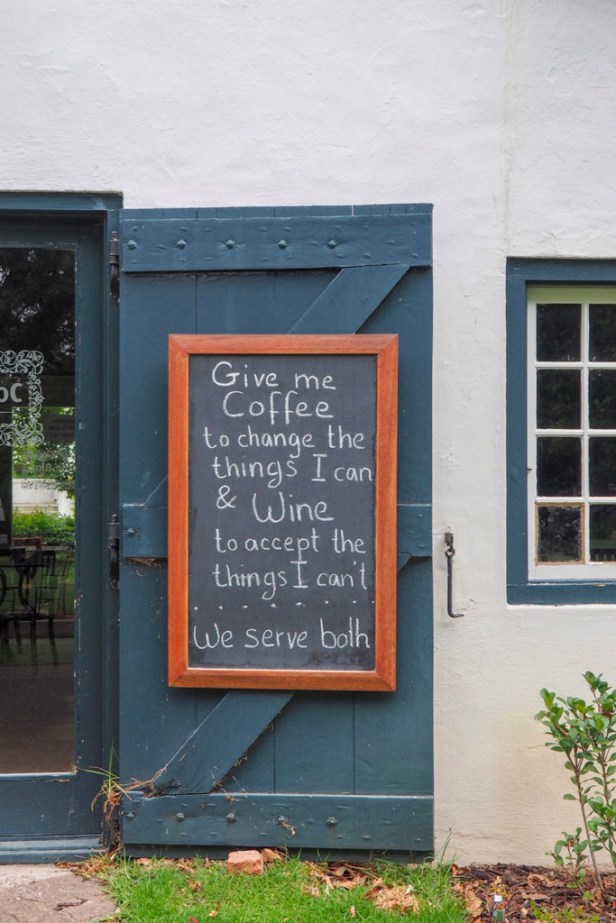 Give me
Coffee
to change the
things I can
& Wine
to accept the
things I can't
. . . . . . .
We serve both